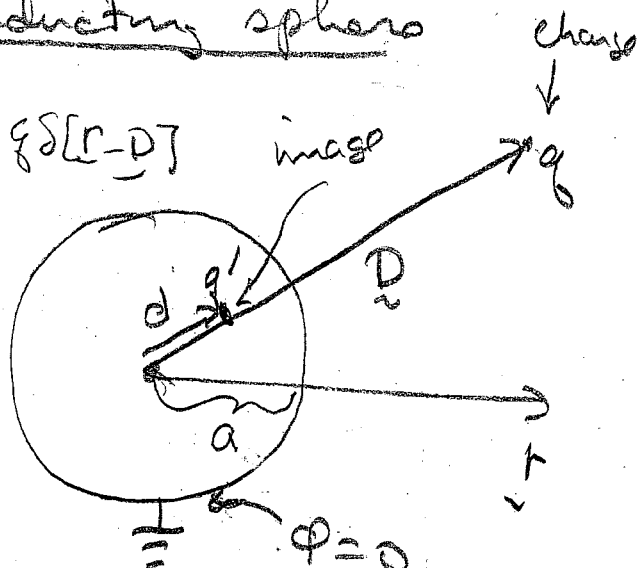 ducting sphere
charge
qδ[r-D]
image
q
q'
D
d
a
r
φ=0